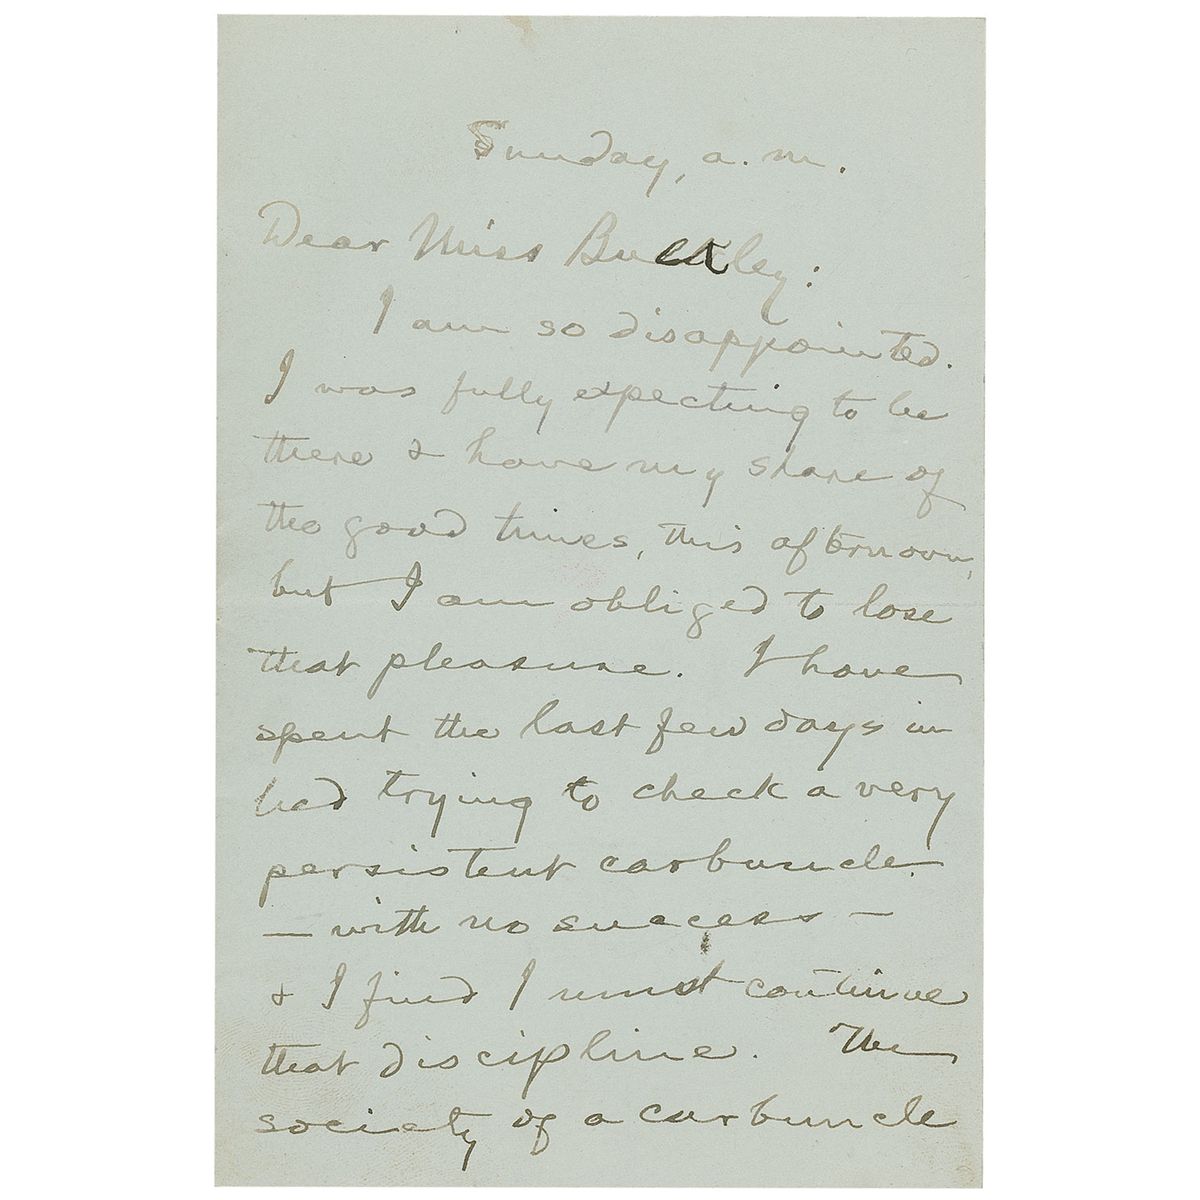 Sunday, a.m.
Dear Miss Buckley:
I am so disappointed.
I was fully expecting to be
there & have my share of
the good times, this afternoon,
but I am obliged to lose
that pleasure. I have
spent the last few days in
bed trying to check a very
persistent carbuncle
— with no success —
& I find I must continue
that discipline. The
society of a carbuncle